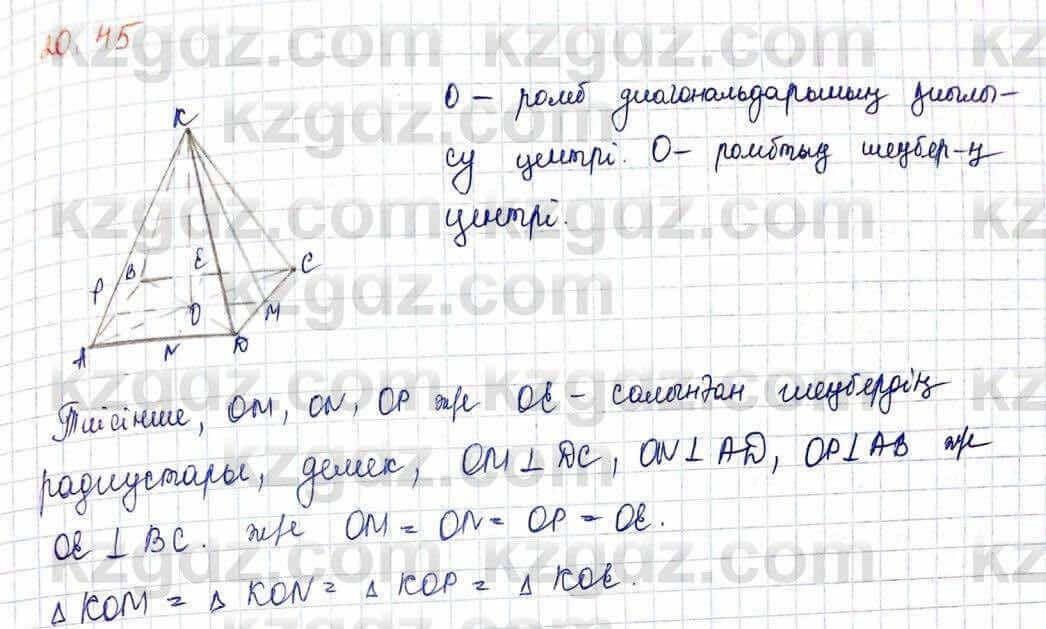 20.45
O – ромб диагональдарының қиылы–
су центрі. O – ромбтың шеңбер-ң
центрі.
K
B
E
C
P
O
M
A
N
D
Тиісінше, OM, ON, OP және OE – салынған шеңбердің
радиустары, демек, OM ⊥ DC, ON ⊥ AD, OP ⊥ AB және
OE ⊥ BC. және OM = ON = OP = OE.
△ KOM = △ KON = △ KOP = △ KOE.
kzgdz.com